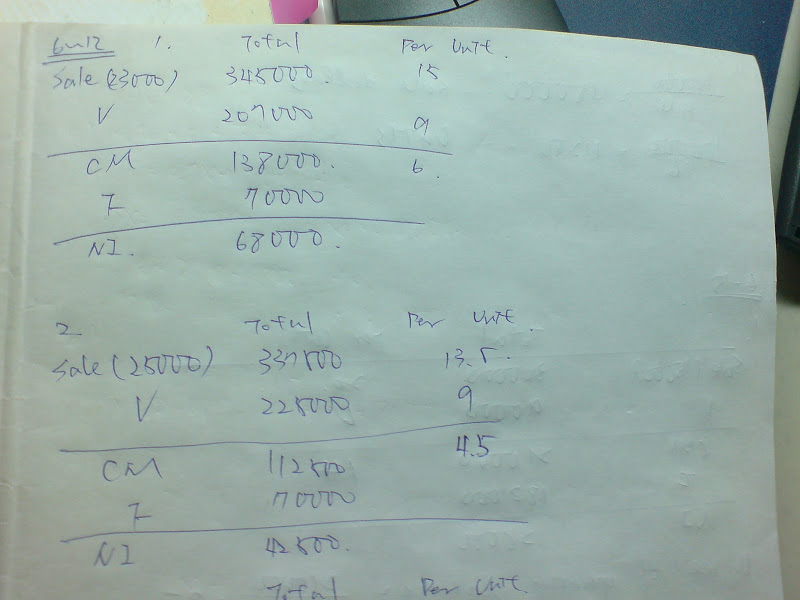 6-12 1. Total Per Unit.
Sale (23000) 345000. 15
V 207000 9
CM 138000. 6.
F 70000
NI. 68000.
2 Total Per Unit.
Sale (25000) 337500 13.5.
V 225000 9
4.5
CM 112500
F 70000
NI 42500.
Total Per Unit.